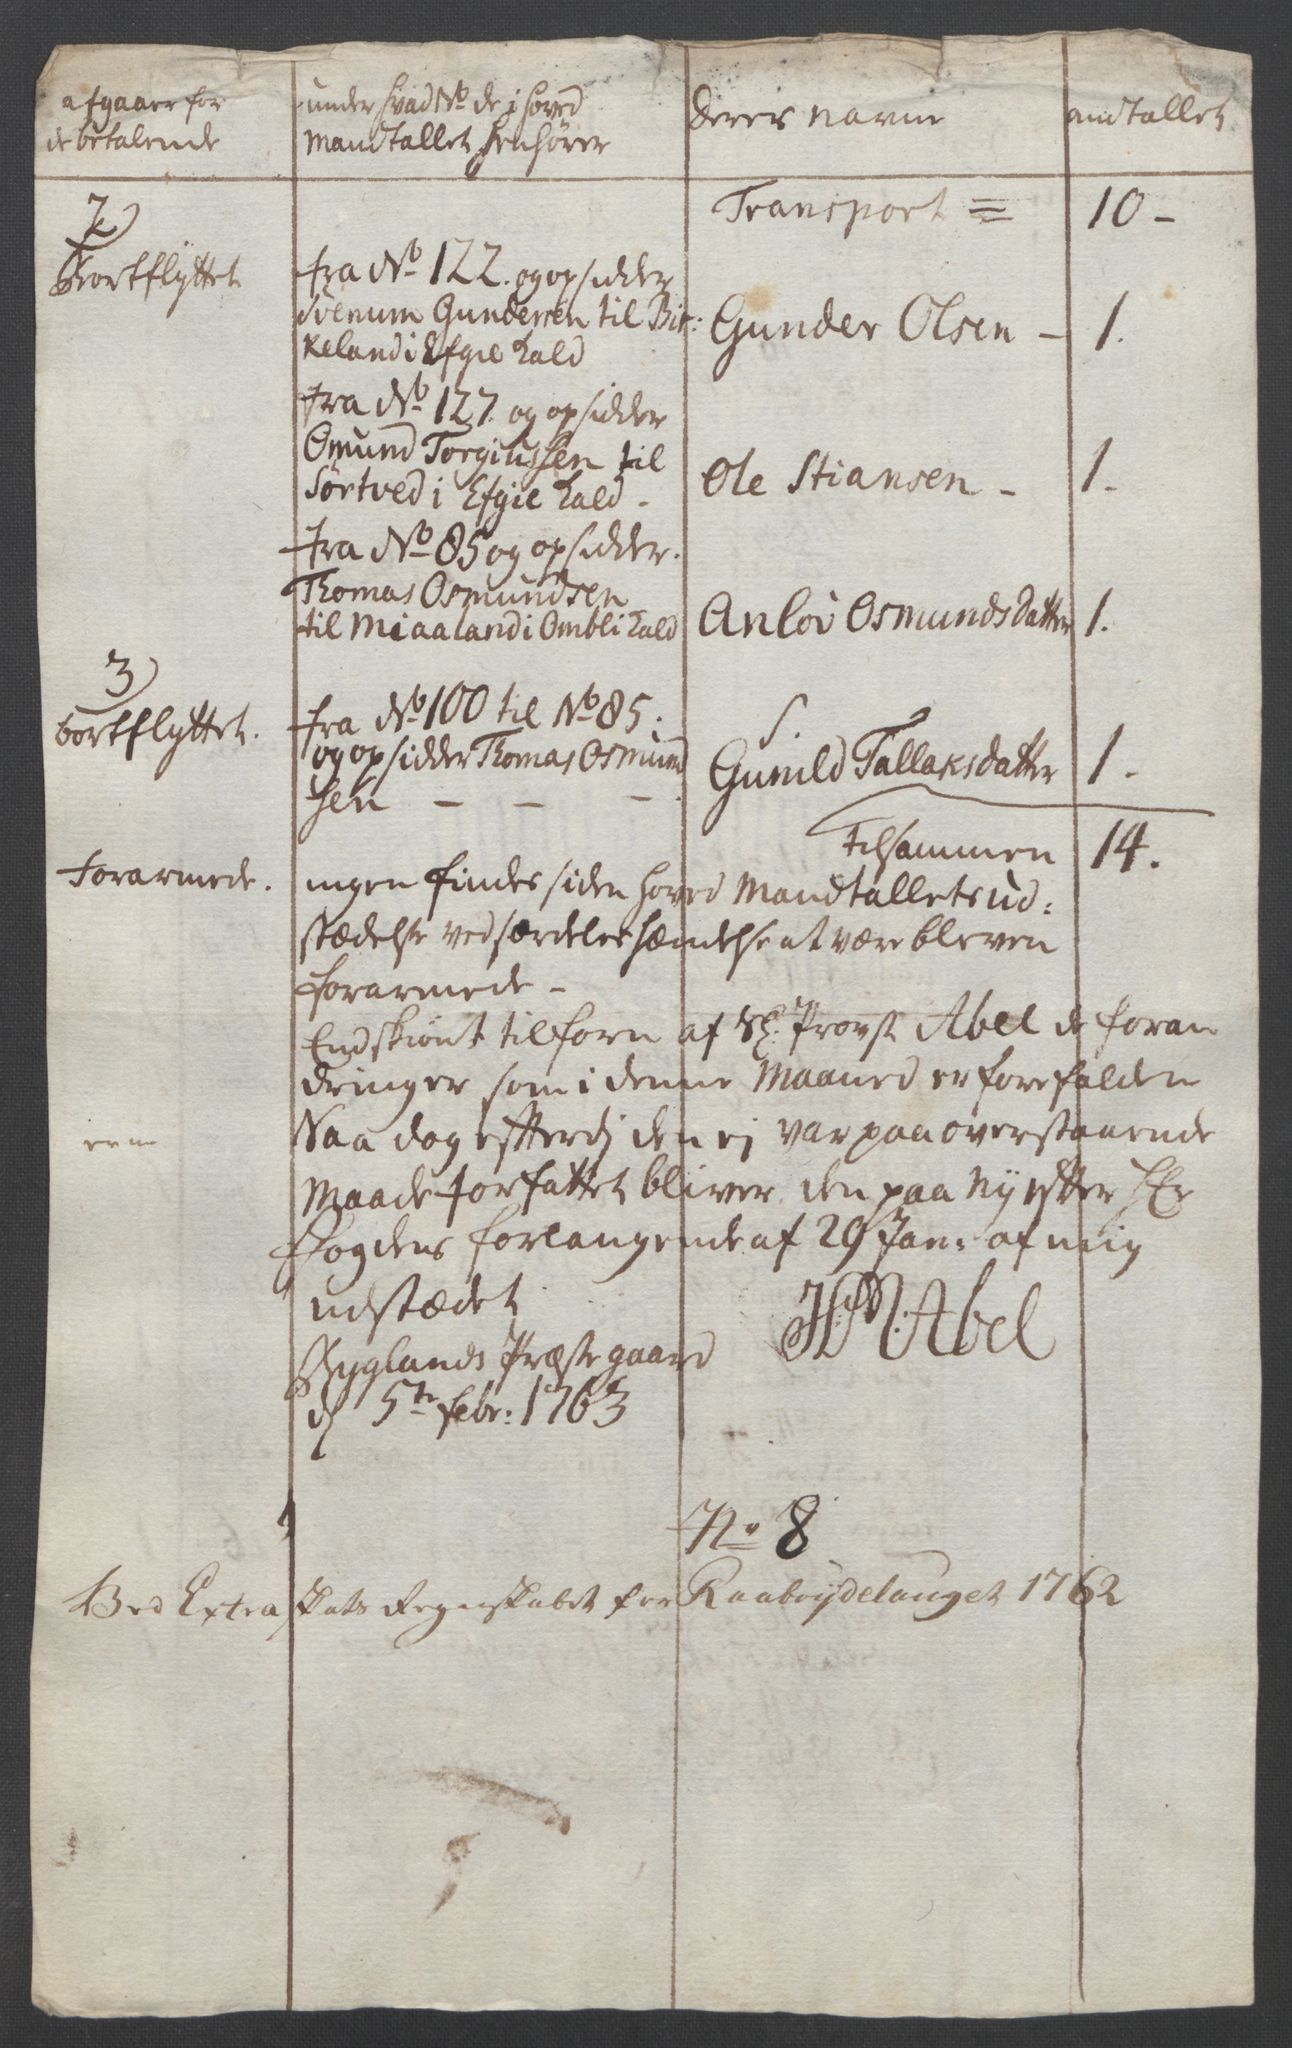 afgaaer for
de betalende
under hvad No de i hoved
Mandtallet henhører
deres navne
andtallet
Transport = 10 -
2)
Bortflyttet
fra No 122. og opsidder
Svenum Gundersen til Bir:
keland i Efgie Kald
Gunder Olsen - 1.
fra No 127 og opsidder
Omund Torgiussen til
Sørtved i Efgie Kald -
Ole Stiansen - 1.
fra No 85 og opsidder.
Thomas Osmundsen
til Miaaland i Ombli Kald
Anlov Osmunds datter 1.
3)
bortflyttet.
fra No 100 til No 85.
og opsidder Thomas Osmund
sen - - -
S.
Gunild Tallaksdatter 1.
tilsammen 14.
forarmede.
ingen findes siden hoved Mandtallets ud:
stædelse ved særdeles hændelse at være bleven
forarmede -
Endskiønt tilforn af Sl. Provst Abel de foran
dringer som i denne Maaned er forefalden
Saa dog efterdj den ej var paa overstaaende
Maade forfattet bliver den paa ny efter Hr
Fogdens forlangende af 29 Jan: af mig
udstædet
HM Abel
Byglands Præste gaard
d 5te febr: 1763
No 8
Ved Extra Skats Regnskabet for Raabøydelauget 1762